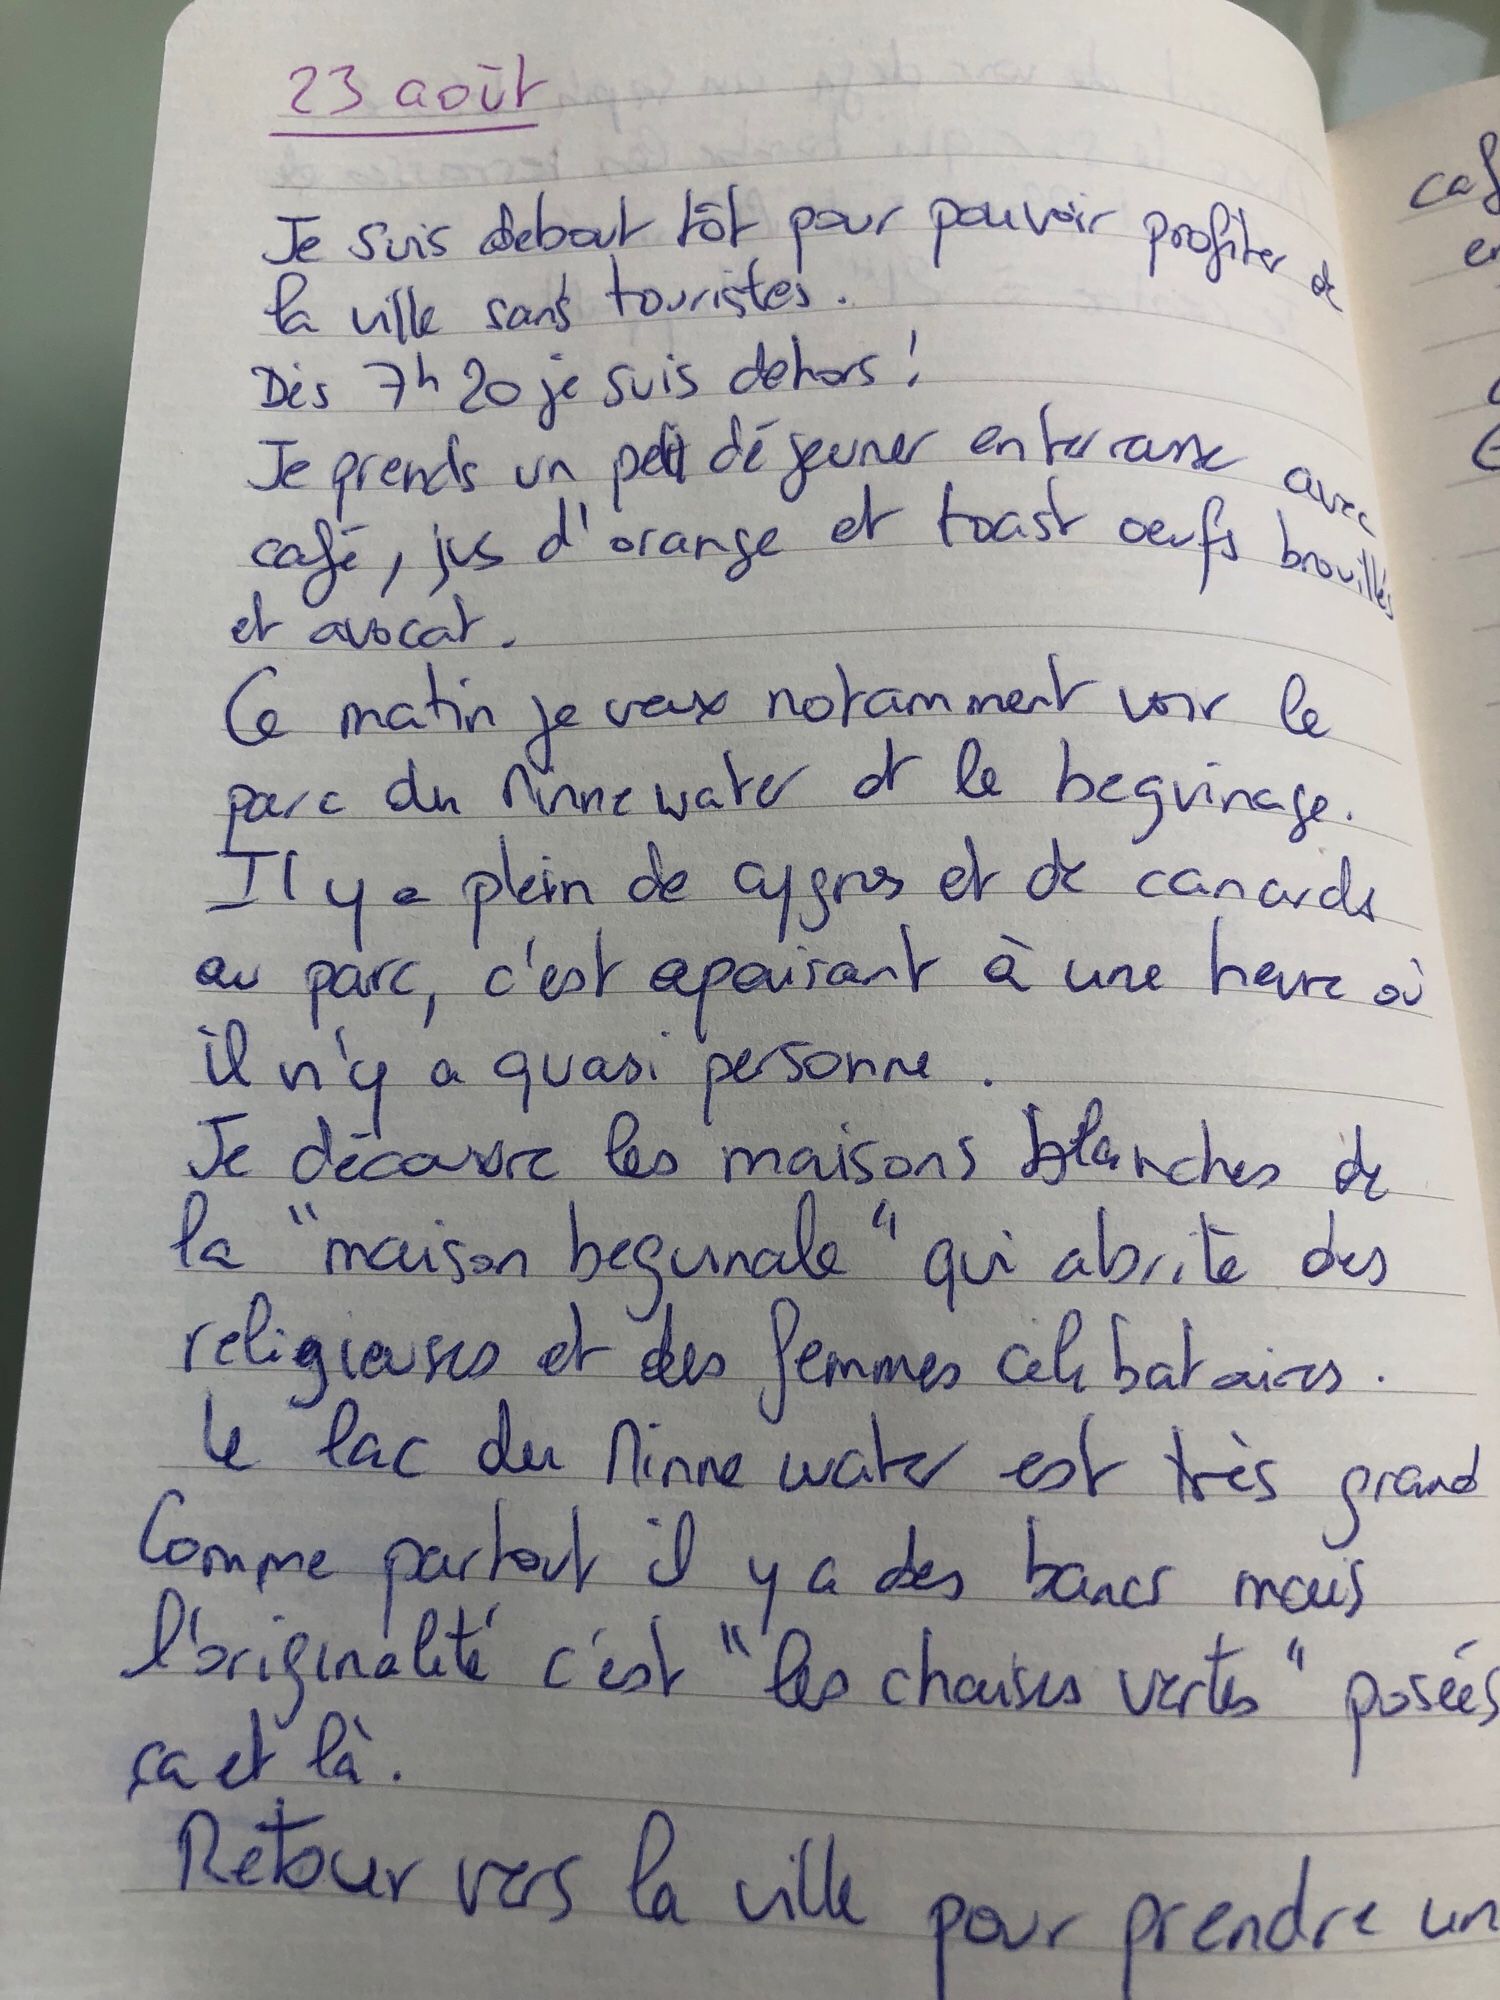 23 août
Je suis debout tôt pour pouvoir profiter de
la ville sans touristes.
Dès 7h20 je suis dehors !
Je prends un petit déjeuner en terrasse avec
café, jus d'orange et toast oeufs brouillés
et avocat.
Ce matin je veux notamment voir le
parc du Minnewater et le beguinage.
Il y a plein de cygnes et de canards
au parc, c'est apaisant à une heure où
il n'y a quasi personne.
Je découvre les maisons blanches de
la "maison beguinale" qui abrite des
religieuses et des femmes célibataires.
Le lac du Minnewater est très grand
Comme partout il y a des bancs mais
l'originalité c'est "les chaises vertes" posées
ça et là.
Retour vers la ville pour prendre un